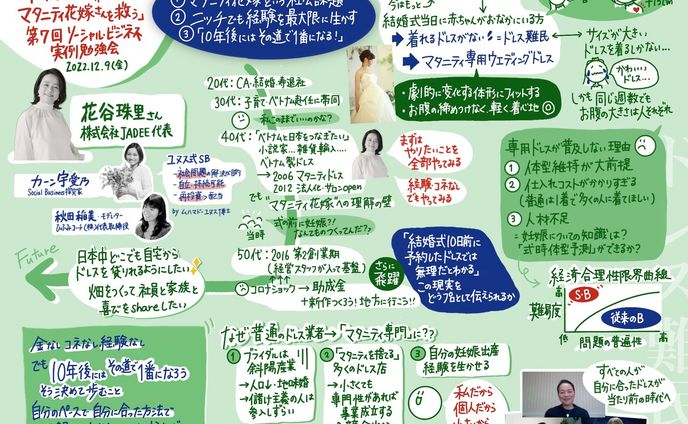 マタニティ花嫁さんを救う」
第7回ソーシャルビジネス
実例勉強会
2022.12.9(金)
② ニッチでも経験を最大限に生かす
③ 10年後にはその道で1番になる!
花谷珠里さん
株式会社JADEE代表
カーン宇愛乃
Social Business探究家
ユヌス式SB
社会問題の解決が目的
自立・持続可能
再投資>配当
by ムハマド・ユヌス博士
秋田稲美
20代:CA・結婚・寿退社
30代:子育て・ベトナム赴任に帯同
私このままでいいのかな?
40代:「ベトナムと日本をつなぎたい」
小説家…雑貨輸入…
ベトナム製ドレス
→2006 マタニティドレス
2012 法人化・サロンopen
でも マタニティ花嫁への理解の壁
当時
式の前に妊娠?!
なんてものつくってんだ?
50代:2016 第2創業期
(経営スタッフが入って基盤)
コロナショック→→助成金
+新作つくろう! 地方に行こう!!
さらに飛躍
まずは
やりたいことを
全部やってみる
経験コネなし
でもやってみる
結婚式当日に赤ちゃんがおなかにいる方
→着れるドレスがない!=ドレス難民
→マタニティ専用ウエディングドレス
・劇的に変化する体持ちにフィットする
・お腹の締めつけなく、軽く着心地◎
サイズが大きい
ドレスを着るしかない…
かわいいドレス…
しかも同じ週数でも
お腹の大きさは人それぞれ
専用ドレスが普及しない理由
① 体型維持が大前提
② 仕入れコストがかかりすぎる
(普通は1着で多くの人に着てほしい)
③ 人材不足
=妊娠についての知識は?
「式時体型予測」ができるか?
「結婚式10日前に
予約したドレスでは
無理だとわかる」
この現実を
どう1着として伝えられるか
経済合理性限界曲線
難易度
高
低
S・B
従来のB
低 問題の普遍性 高
Future
日本中どこでも自宅から
ドレスを貸りれるようにしたい
畑をつくって社員と家族と
喜びをshareしたい
金なし コネなし 経験なし
でも 10年後にはその道で1番になろう
そう決めて歩むこと
自分のペースで自分に合った方法で
なぜ普通のドレス業者→「マタニティ専門」に??
① ブライダルは
斜陽産業
→人口↓・地味婚
→儲け主義の人は
参入しずらい
② 「マタニティを捨てる」
多くのドレス店
→小さくても
専門性があれば
事業成立する
③ 自分の妊娠出産
経験を生かせる
私だから
個人だから
小さいから
すべての人が
自分に合ったドレスが
当たり前の時代へ
ドレス難民